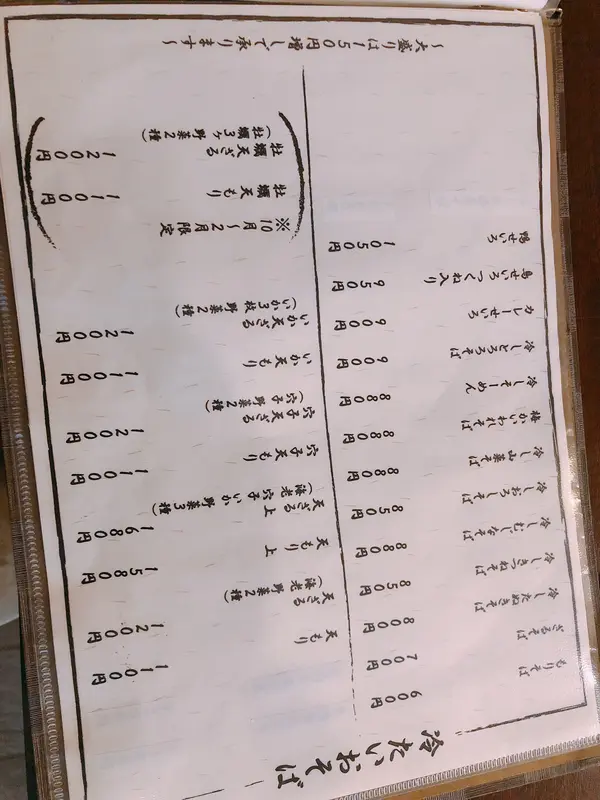 冷たいおそば
もりそば 600円
ざるそば 700円
冷したぬきそば 800円
冷しきつねそば 850円
冷しむじなそば 880円
冷しおろしそば 850円
冷し山菜そば 880円
梅かいわれそば 880円
冷しそーめん 880円
冷しとろろそば 900円
カレーせいろ 900円
鳥せいろつくね入り 950円
鴨せいろ 1050円
天もり 1100円
天ざる 1200円
（海老 野菜2種）
天もり上 1580円
天ざる上 1680円
（海老 穴子 いか 野菜3種）
穴子天もり 1100円
穴子天ざる 1200円
（穴子 野菜2種）
いか天もり 1100円
いか天ざる 1200円
（いか3枚 野菜2種）
※10月～2月限定
牡蠣天もり 1100円
牡蠣天ざる 1200円
（牡蠣3ヶ野菜2種）
～大盛りは150円増しで承ります～